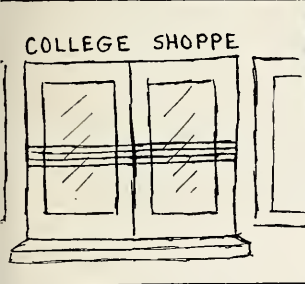 COLLEGE SHOPPE